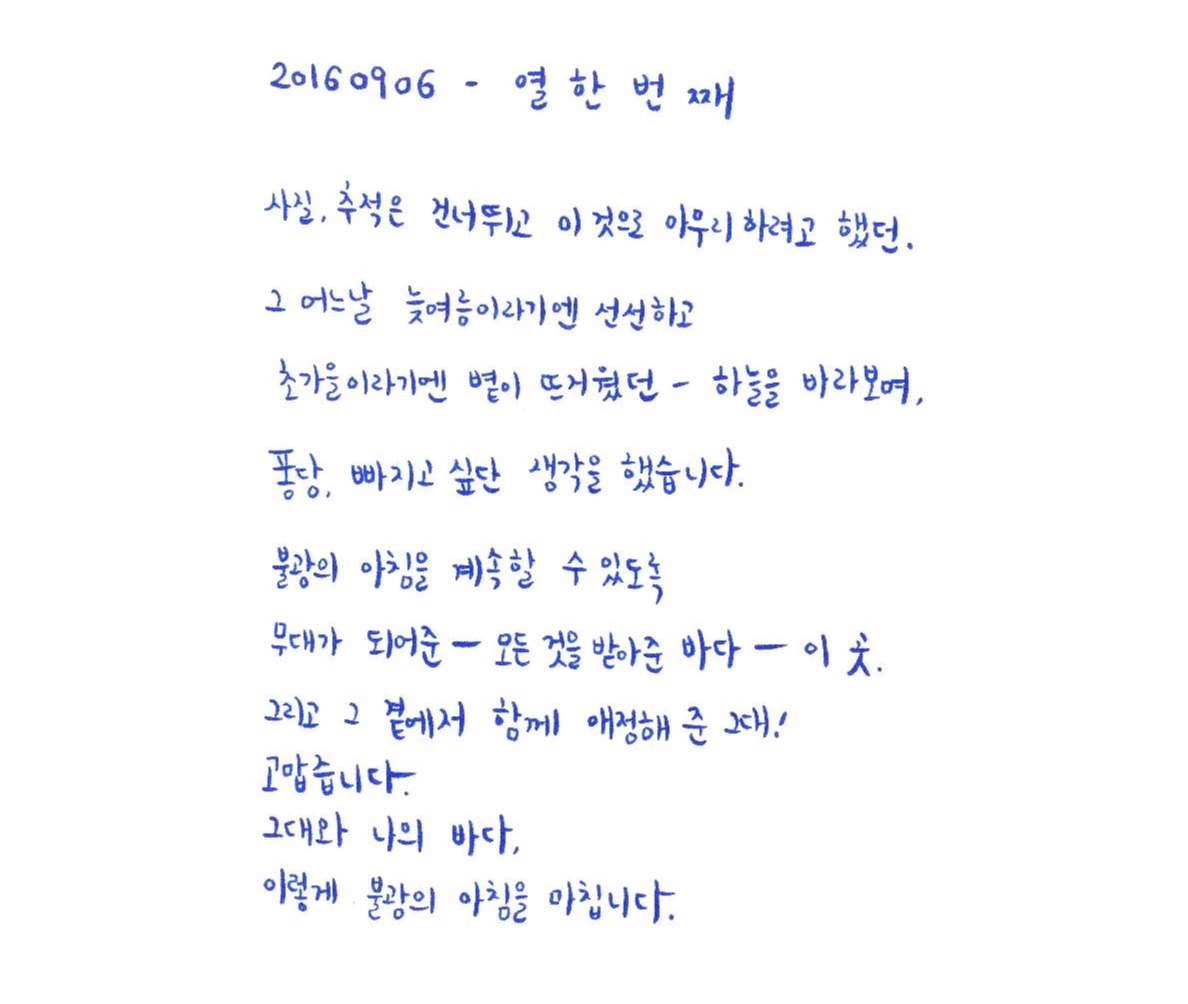 20160906 - 열 한 번 째
사실, 추적은 건너뛰고 이 것으로 마무리 하려고 했던.
그 어느날 늦여름이라기엔 선선하고
초가을이라기엔 볕이 뜨거웠던 - 하늘을 바라보며,
퐁당, 빠지고 싶단 생각을 했습니다.
불광의 아침을 계속할 수 있도록
무대가 되어준 - 모든 것을 받아준 바다 - 이 곳.
그리고 그 곁에서 함께 애정해 준 그대!
고맙습니다.
그대와 나의 바다,
이렇게 불광의 아침을 마칩니다.